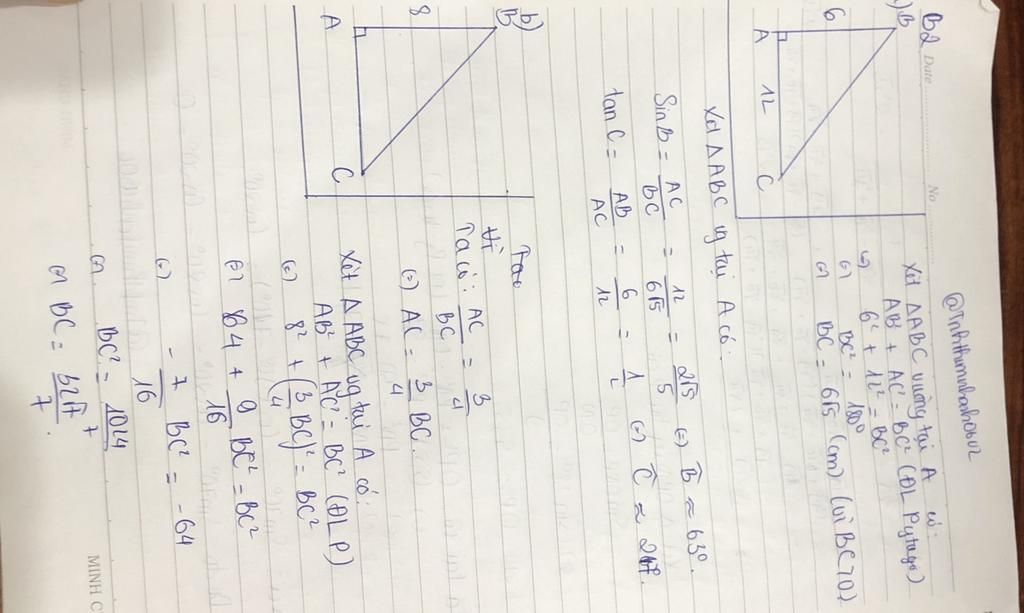 B2 Date No
@Tnhithuminhanhob02
B
6
A 12 C
Xét ΔABC vuông tại A có:
AB² + AC² = BC² (ĐL Pytago)
(=) 6² + 12² = BC²
(=) BC² = 180
(=) BC = 6√5 (cm) (vì BC > 0)
Xét ΔABC vg tại A có:
Sin B = AC/BC = 12/6√5 = 2√5/5 (=) B̂ ≈ 63°.
tan C = AB/AC = 6/12 = 1/2 (=) Ĉ ≈ 27°.
b)
B
8
A C
Ta có: AC/BC = 3/4
(=) AC = 3/4 BC.
Xét ΔABC vg tại A có:
AB² + AC² = BC² (ĐL P)
(=) 8² + (3/4 BC)² = BC²
(=) 64 + 9/16 BC² = BC²
(=) -7/16 BC² = -64
(=) BC² = 1024/7
(=) BC = 32√7/7.
MINH C